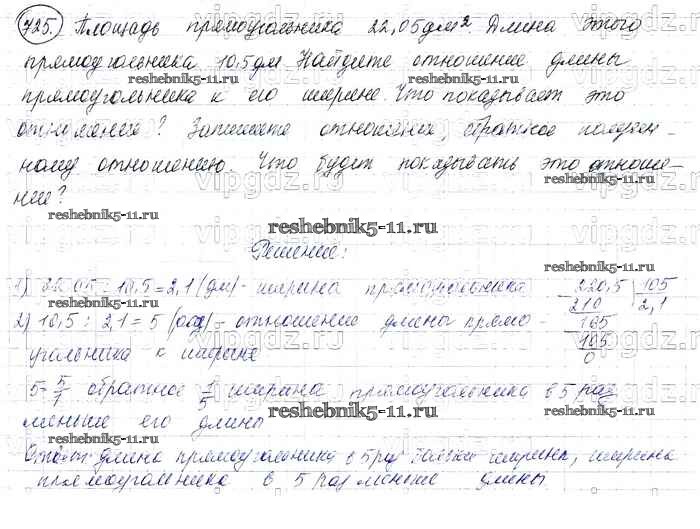 725. Площадь прямоугольника 22,05 дм². Длина этого
прямоугольника 10,5 дм. Найдите отношение длины
прямоугольника к его ширине. Что показывает это
отношение? Запишите отношение, обратное получен-
ному отношению. Что будет показывать это отноше-
ние?
Решение:
1) 22,05 : 10,5 = 2,1 (дм) - ширина прямоугольника
220,5 | 105
210 2,1
105
105
0
2) 10,5 : 2,1 = 5 - отношение длины прямо-
угольника к ширине
5 = 5/1 обратное 1/5 ширина прямоугольника в 5 раз
меньше его длины
Ответ: длина прямоугольника в 5 раз ширины, ширина
прямоугольника в 5 раз меньше длины.
reshebnik5-11.ru
reshebnik5-11.ru
reshebnik5-11.ru
reshebnik5-11.ru
reshebnik5-11.ru
reshebnik5-11.ru
reshebnik5-11.ru
reshebnik5-11.ru
reshebnik5-11.ru
vipgdz.ru